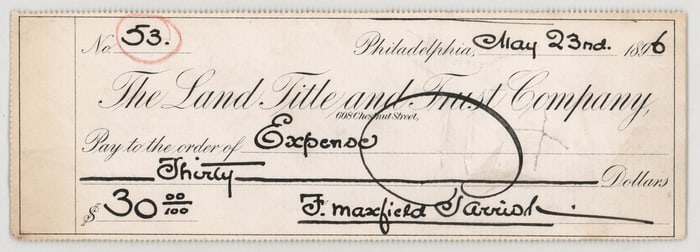 No. 53. Philadelphia, May 23nd. 1896
The Land Title and Trust Company,
608 Chestnut Street,
Pay to the order of Expense
Thirty Dollars
$30 00/100 F. Maxfield Parrish